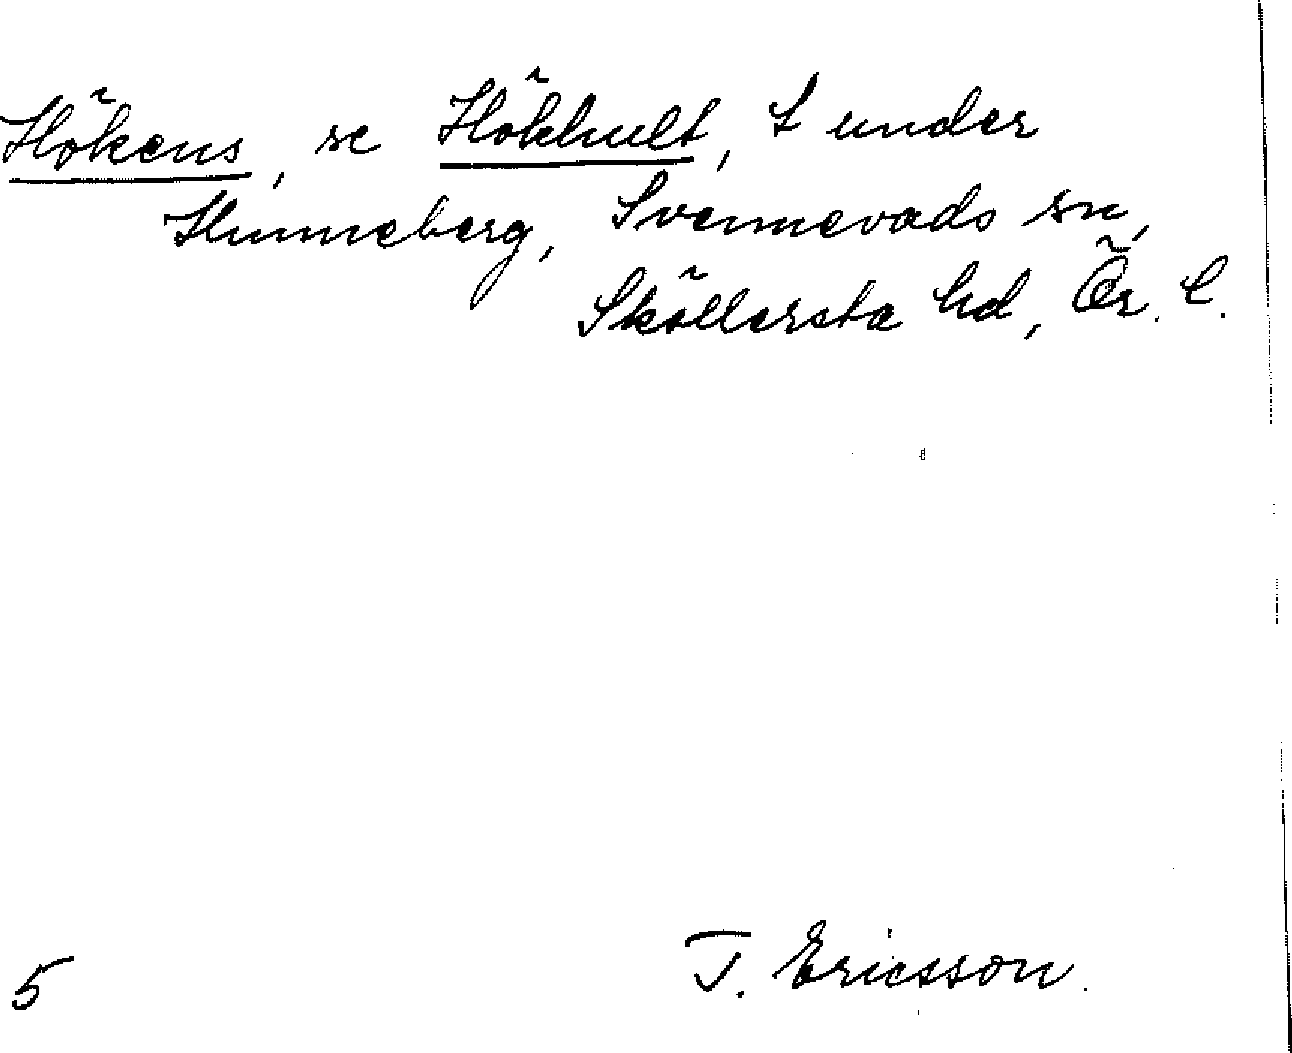 Hökens, se Hökhult, t under
Hunneberg, Svennevads sn,
Sköllersta hd, Ör. l.
5
T. Ericsson.